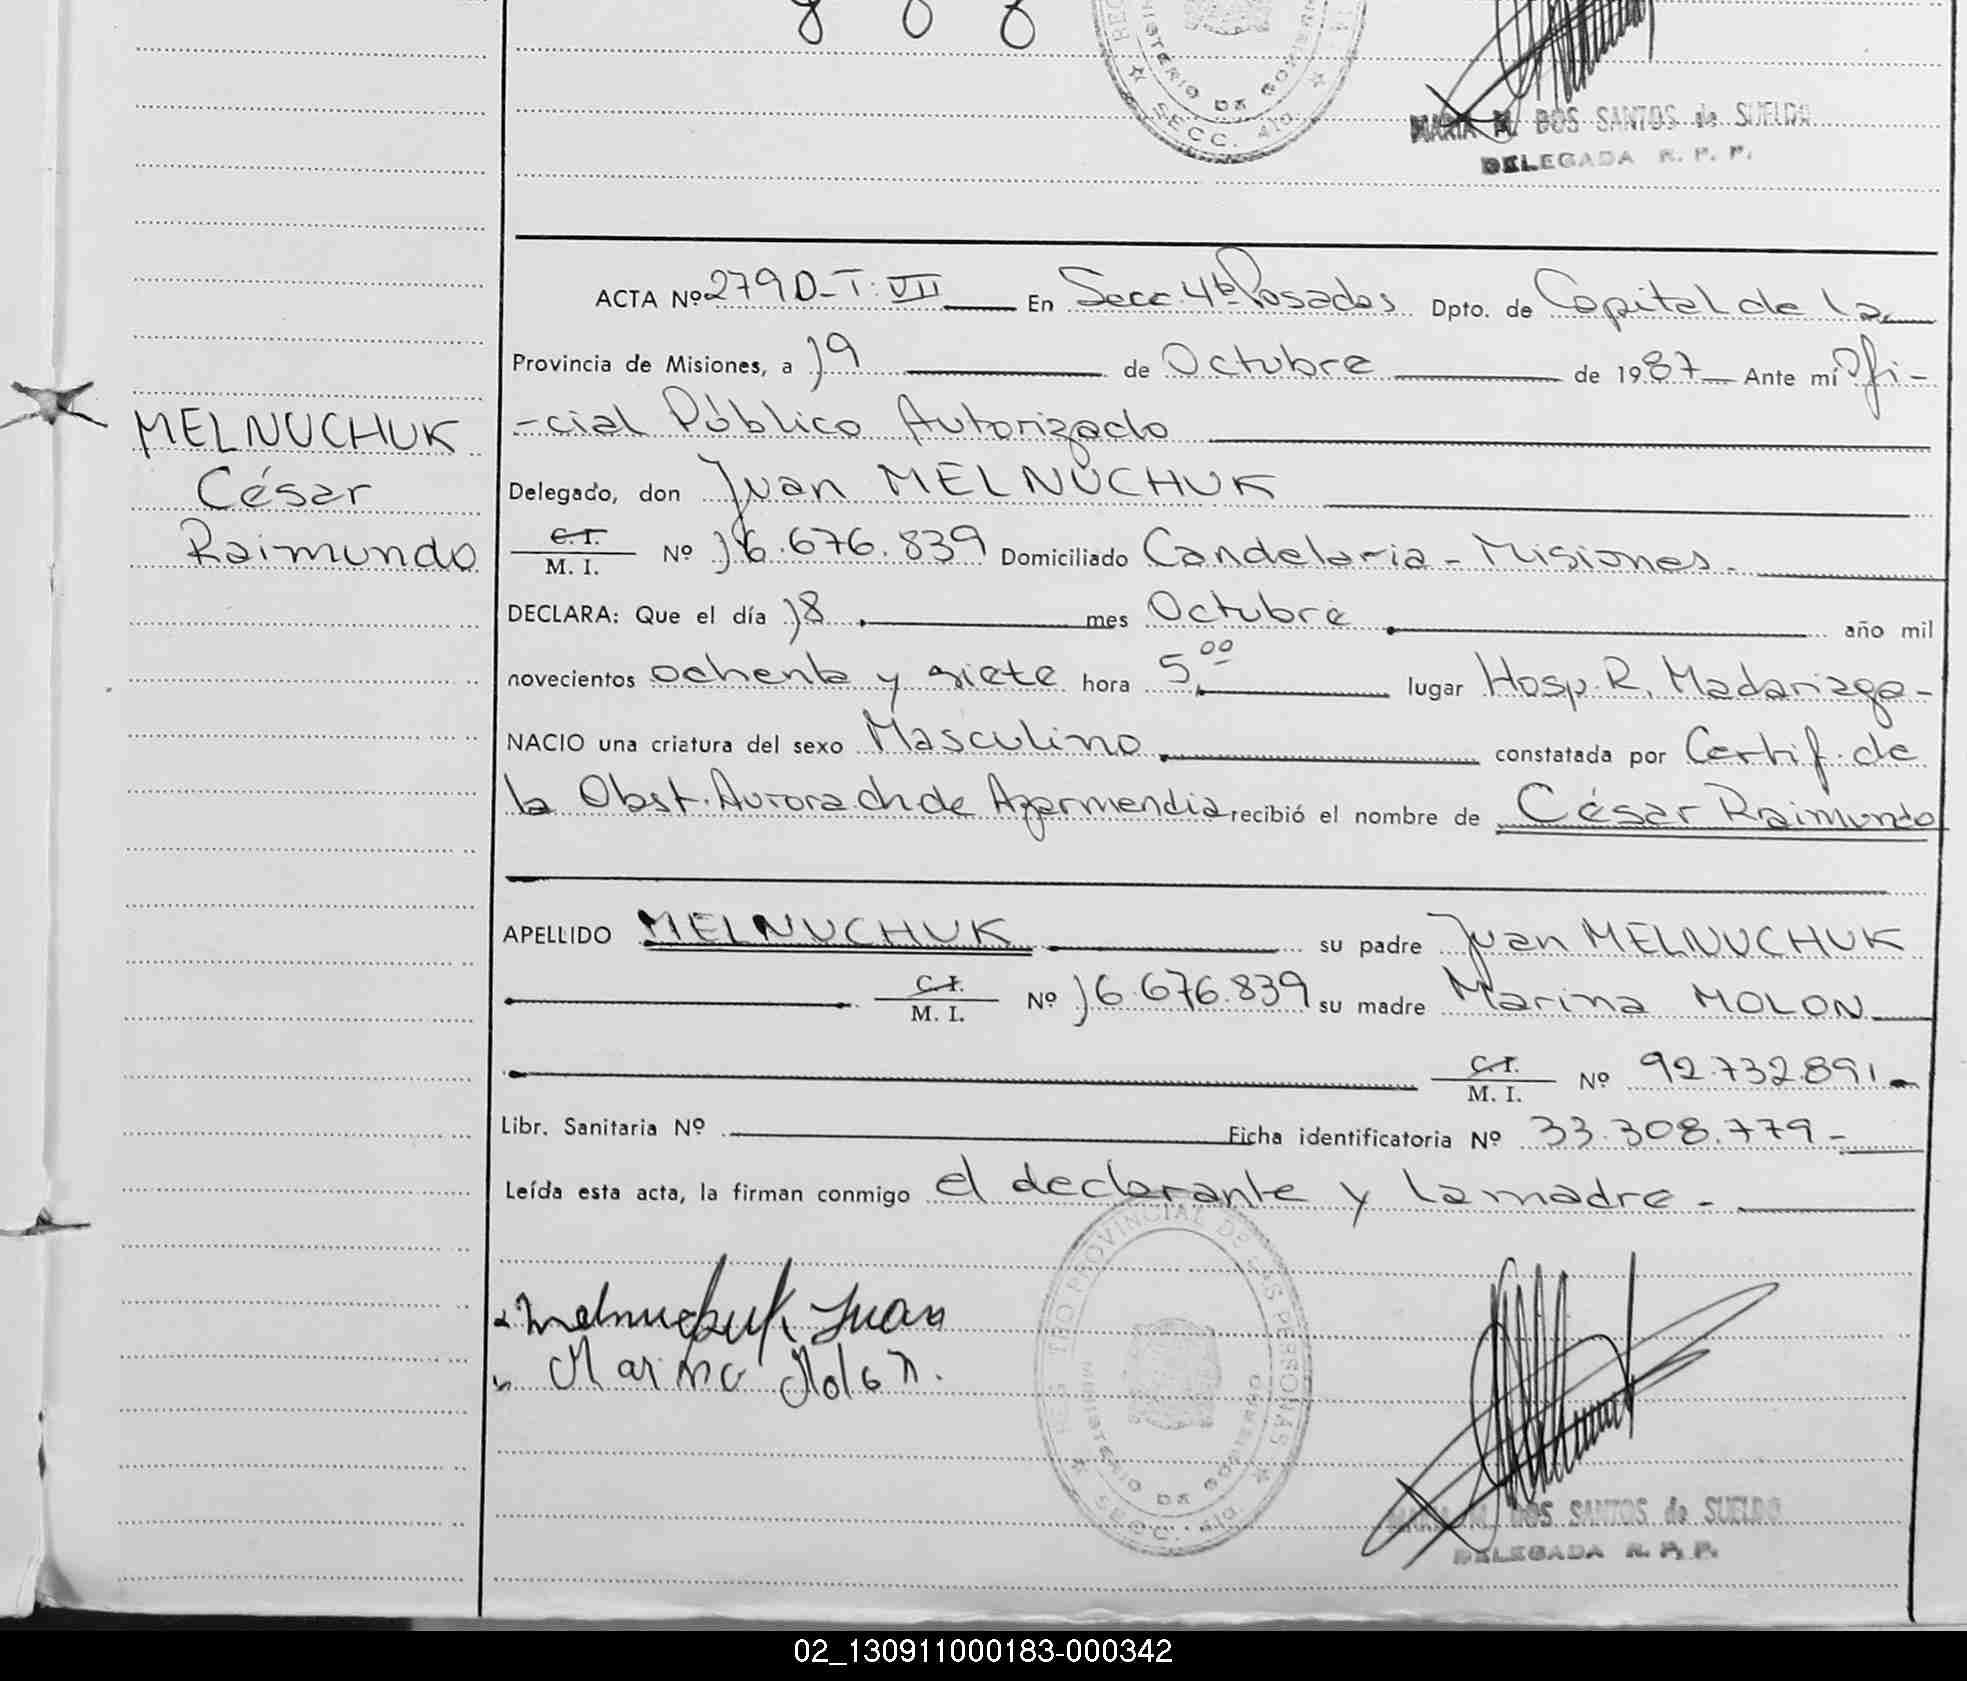 8 8 8
MINISTERIO DE GOBIERNO
SECC. 4ta.
MARIA M. DOS SANTOS de SUELDO
DELEGADA R. P. P.
ACTA Nº 279 D-T: VII En Secc. 4ta Posadas Dpto. de Capital de la
Provincia de Misiones, a 19 de Octubre de 1987 Ante mí Ofi-
-cial Público Autorizado
MELNUCHUK
César
Raimundo
Delegado, don Juan MELNUCHUK
C.I.
M. I. Nº 16.676.839 Domiciliado Candelaria - Misiones.
DECLARA: Que el día 18 mes Octubre año mil
novecientos ochenta y siete hora 5,00 lugar Hosp. R. Madariaga-
NACIO una criatura del sexo Masculino constatada por Certif. de
la Obst. Aurora ch de Azarmendia recibió el nombre de César Raimundo
APELLIDO MELNUCHUK su padre Juan MELNUCHUK
C.I.
M. I. Nº 16.676.839 su madre Marina MOLON
C.I.
M. I. Nº 92.732.891-
Libr. Sanitaria Nº Ficha identificatoria Nº 33.308.779-
Leída esta acta, la firman conmigo el declarante y la madre-
REGISTRO PROVINCIAL DE LAS PERSONAS
Melnuchuk Juan
Marina Molon.
MINISTERIO DE GOBIERNO
SECC. 4ta.
MARIA M. DOS SANTOS de SUELDO
DELEGADA R. P. P.
02_130911000183-000342